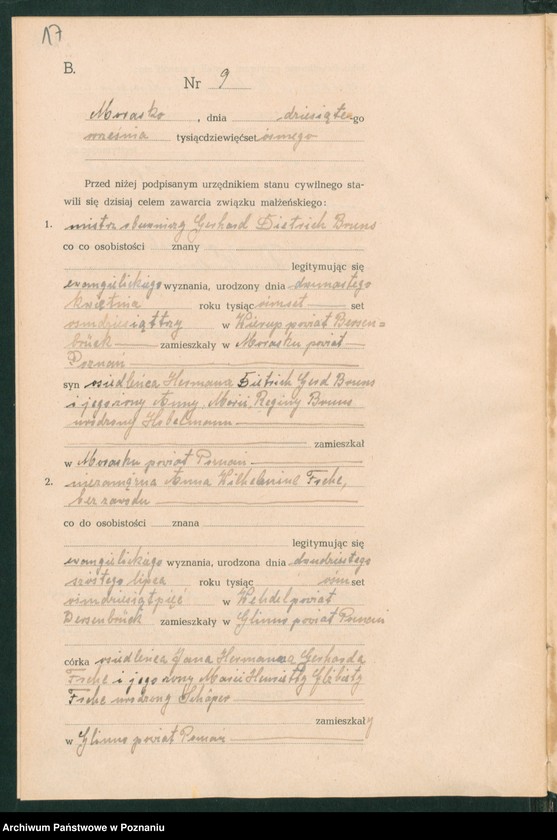 17
B.
Nr 9
Morasko, dnia dziesiątego
września tysiącdziewięćset ósmego
Przed niżej podpisanym urzędnikiem stanu cywilnego sta-
wili się dzisiaj celem zawarcia związku małżeńskiego:
1. mistrz Gerhard Dietrich Bruns
co co osobistości znany
legitymując się
ewangielickiego wyznania, urodzony dnia dwunastego
kwietnia roku tysiąc ośmset set
osmdziesiąttrzy w powiat Bersen=
brück zamieszkały w Morasku powiat
Poznań
syn osiedleńca Hermana Dietrich Gerd Bruns
i jego żony Anny Marii Reginy Bruns
urodzonej
zamieszkał
w Morasku powiat Poznań
2. niezamężna Anna Wilhelmine Fsche,
bez zawodu
co do osobistości znana
legitymując się
ewangielickiego wyznania, urodzona dnia dwudziestego
szóstego lipca roku tysiąc ośm set
osmdziesiątpięć w Wehdel powiat
Bersenbrück zamieszkały w Glinno powiat Poznań
córka osiedleńca Jana Hermana Gerharda
Fsche i jego żony Marii Henrietty Elżbiety
Fsche urodzonej Schäper
zamieszkały
w Glinno powiat Poznań
Archiwum Państwowe w Poznaniu